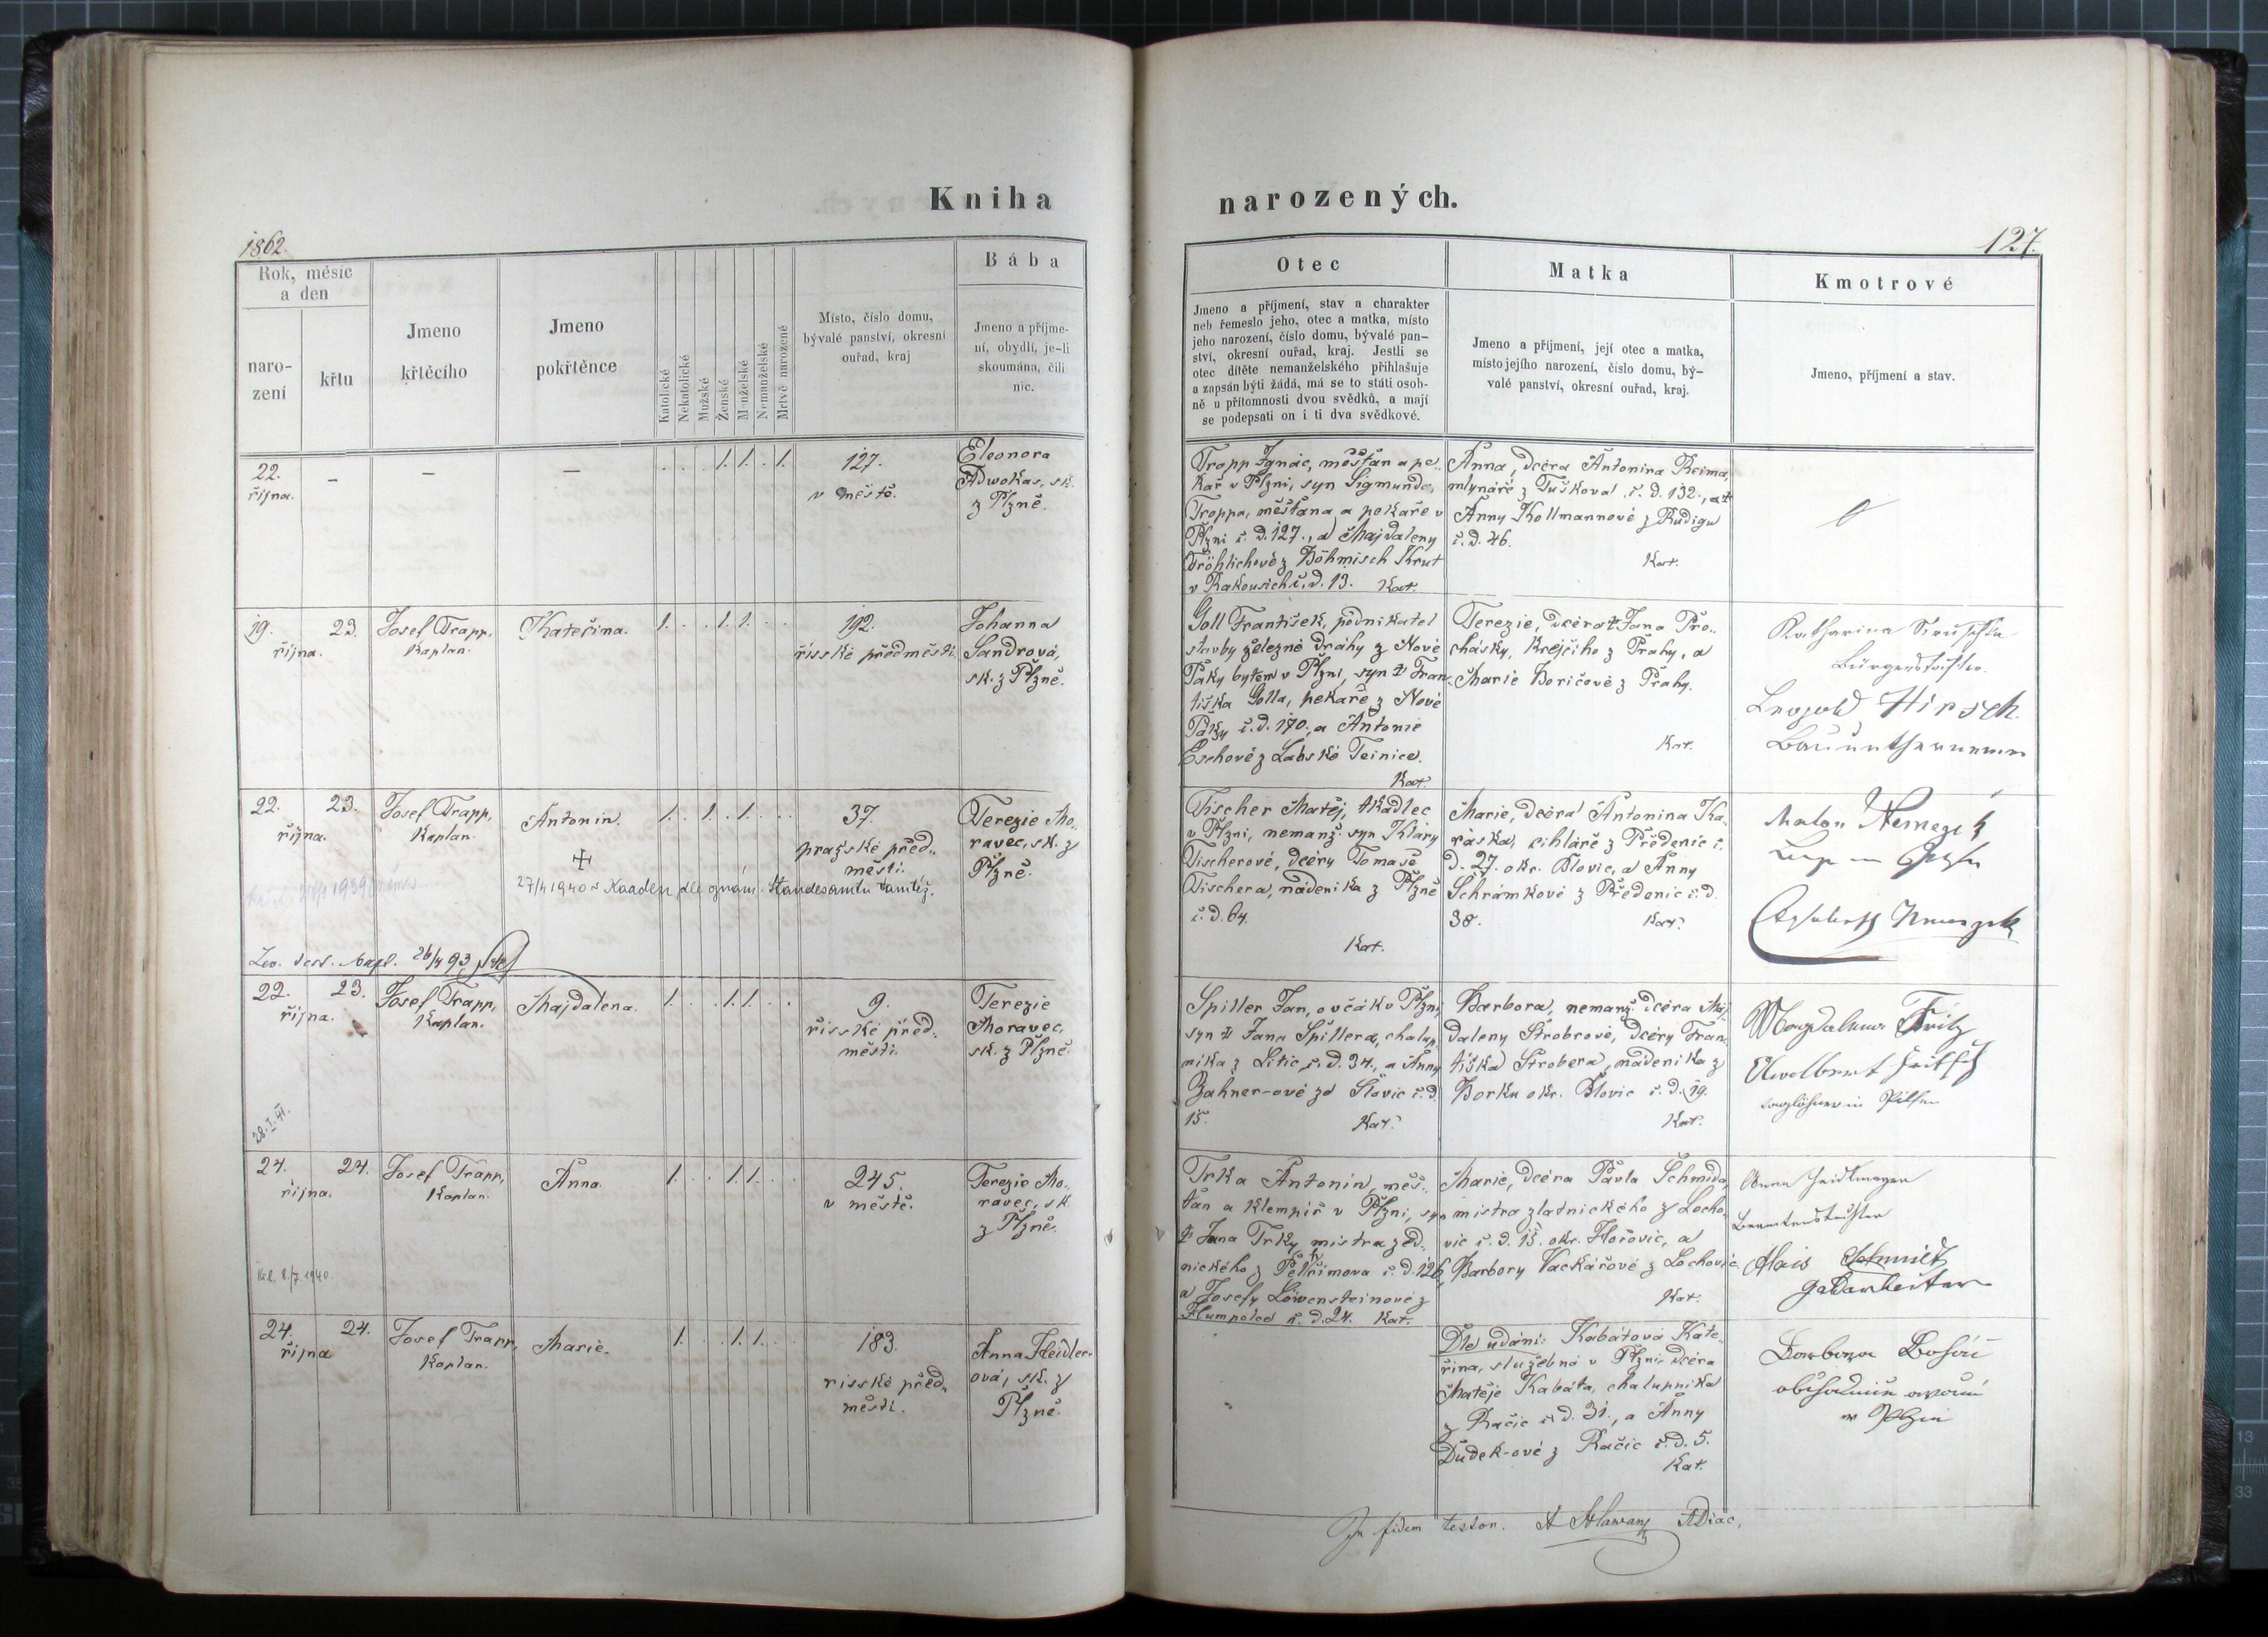 Kniha
narozených.
1862.
127.
Rok, měsíc
a den
naro-
zení
křtu
Jmeno
křtěcího
Jmeno
pokřtěnce
Katolické
Nekatolické
Mužské
Ženské
Manželské
Nemanželské
Mrtvě narozené
Místo, číslo domu,
bývalé panství, okresní
ouřad, kraj
Bába
Jmeno a příjme-
ní, obydlí, je-li
skoumána, čili
nic.
Otec
Jmeno a příjmení, stav a charakter
neb řemeslo jeho, otec a matka, místo
jeho narození, číslo domu, bývalé pan-
ství, okresní ouřad, kraj. Jestli se
otec dítěte nemanželského přihlašuje
a zapsán býti žádá, má se to státi osob-
ně u přítomnosti dvou svědků, a mají
se podepsati on i ti dva svědkové.
Matka
Jmeno a příjmení, její otec a matka,
místo jejího narození, číslo domu, bý-
valé panství, okresní ouřad, kraj.
Kmotrové
Jmeno, příjmení a stav.
22.
října.
–
–
–
1. 1. 1.
127.
v městě.
Eleonora
Adwokas, sk.
z Plzně.
Tropp Ignác, měšťan a pe-
kař v Plzni, syn Sigmunda
Troppa, měšťana a pekaře v
Plzni č. d. 127., a Majdaleny
Fröhlichové z Böhmisch Krut
v Rakousích č. d. 13. Kat.
Anna, dcera Antonina Reima,
mlynáře z Tuškova č. d. 132., a
Anny Kollmannové z Rudigu
č. d. 46.
Kat.
19. 23.
října.
Josef Trapp,
Kaplan.
Kateřina.
1. 1. 1.
192.
říšské předměstí.
Johanna
Sandrová,
sk. z Plzně.
Goll František, podnikatel
stavby železné dráhy z Nové
Paky bytem v Plzni, syn † Fran-
tiška Golla, pekaře z Nové
Paky č. d. 170., a Antonie
Eschové z Labské Teinice.
Kat.
Terezie, dcera † Jana Pro-
cházky, krejčího z Prahy, a
Marie Boričové z Prahy.
Kat.
Katharina
Leopold Hirsch.
Bauunternemer
22. 23.
října.
Josef Trapp,
Kaplan.
Antonín.
1. 1. 1.
37.
pražské před-
městí.
Terezie Mo-
ravec, sk. z
Plzně.
27/4 1940 v Kaaden, dle oznám. Standesamtu tamtéž.
26/4 93
Tischer Matěj, tkadlec
v Plzni, nemanž. syn Kláry
Tischerové, dcery Tomáše
Tischera, nádeníka z Plzně
č. d. 64.
Kat.
Marie, dcera Antonina Ka-
ráska, cihláře z Předenic č.
d. 27. okr. Blovic, a Anny
Schrámkové z Předenic č. d.
38. Kat.
22. 23.
října.
Josef Trapp,
Kaplan.
Majdalena.
1. 1. 1.
9.
říšské před-
městí.
Terezie
Moravec,
sk. z Plzně.
28. I. 41.
Spiller Jan, ovčák v Plzni,
syn † Jana Spillera, chalup-
níka z Litic, č. d. 34., a Anny
Zahner-ové ze Štovic č. d.
15. Kat.
Barbora, nemanž. dcera Maj-
daleny Štrobrové, dcery Fran-
tiška Štrobera, nádeníka z
Borku okr. Blovic č. d. 19.
Kat.
Magdalena Fritz
taglöhner in Pilsen
24. 24.
října.
Josef Trapp,
Kaplan.
Anna.
1. 1. 1.
245.
v městě.
Terezie Mo-
ravec, sk.
z Plzně.
8./7. 1940.
Trka Antonín, měš-
ťan a klempíř v Plzni, syn
† Jana Trky, mistra zed-
nického z Pelhřimova č. d. 126,
a Josefy Löwensteinové z
Humpolce č. d. 24. Kat.
Marie, dcera Pavla Schmida,
mistra zlatnického z Locho-
vic č. d. 15. okr. Hořovic, a
Barbory Vackářové z Lochovic.
Kat.
Anna
Alois Schmidt
24. 24.
října
Josef Trapp,
Kaplan.
Marie.
1. 1. 1.
183.
risské před-
městí.
Anna Heidler-
ová, sk. z
Plzně.
Dle udání: Kabátová Kate-
řina, služebná v Plzni, dcera
Matěje Kabáta, chalupníka
z Račic č. d. 31., a Anny
Dudek-ové z Račic č. d. 5.
Kat.
Barbora
In fidem testor.